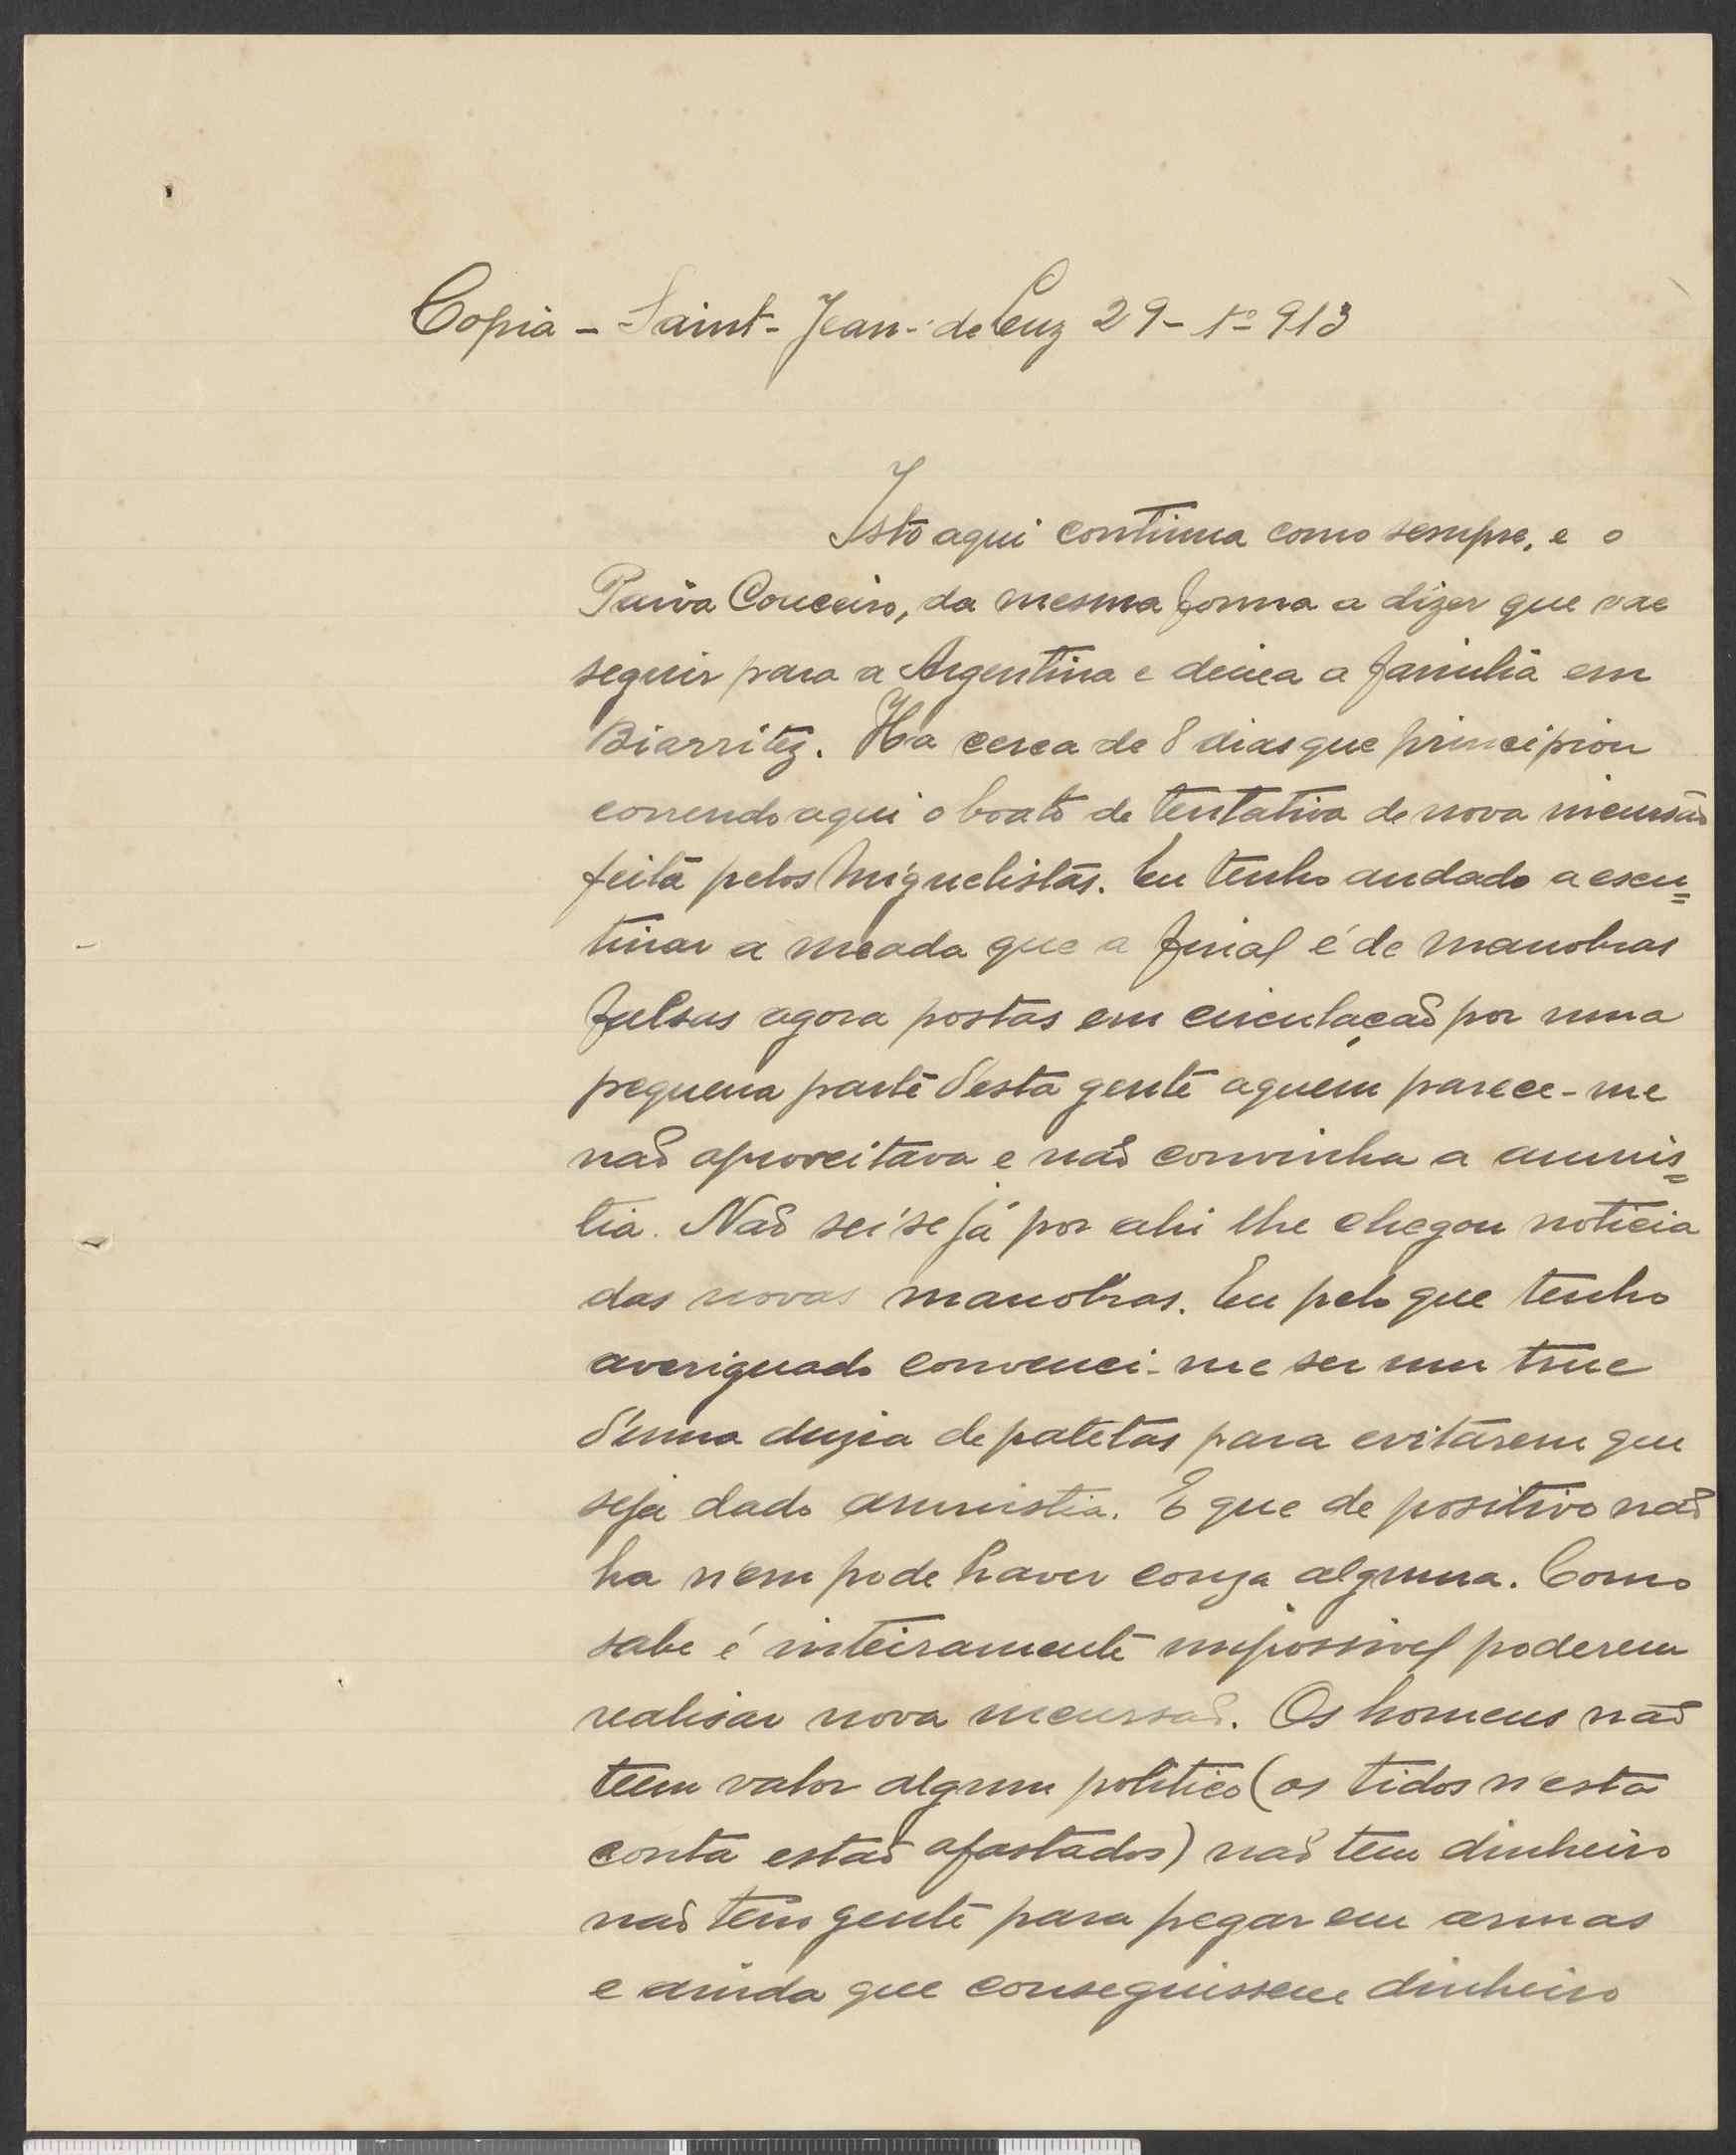 Copia - Saint-Jean-de Luz 29-1º-913
Isto aqui continua como sempre, e o
Paiva Couceiro, da mesma forma a dizer que vae
seguir para a Argentina e deixa a familia em
Biarritez. Ha cerca de 8 dias que principiou
correndo aqui o boato de tentativa de nova incursão
feita pelos Miguelistas. Eu tenho andado a escu=
tinar a meada que a final é de manobras
falsas agora postas em circulação por uma
pequena parte d'esta gente aquem parece-me
não aproveitava e não convinha a amnis=
tia. Não sei se já por ahi lhe chegou noticia
das novas manobras. Eu pelo que tenho
averiguado convenci-me ser um truc
d'uma duzia de patetas para evitarem que
seja dado amnistia. E que de positivo não
ha nem pode haver couza alguma. Como
sabe é inteiramente impossivel poderem
realisar nova incursão. Os homens não
teem valor algum politico (os tidos n'esta
conta estão afastados) não tem dinheiro
não tem gente para pegar em armas
e ainda que conseguissem dinheiro